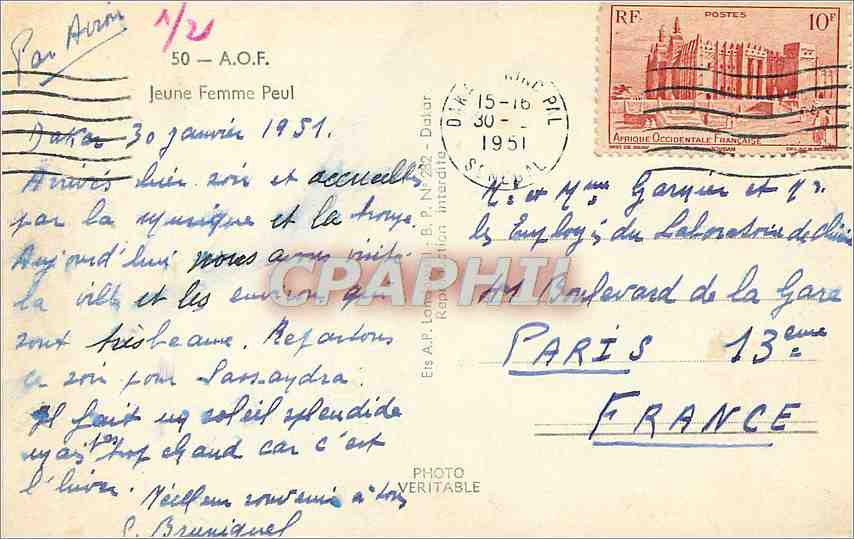 Par Avion
1/21
50 — A.O.F.
Jeune Femme Peul
Dakar 30 janvier 1951.
Arrivés hier soir et accueillis
par la musique et la troupe.
Aujourd'hui nous avons visité
la ville et les environ qui
sont très beaux. Repartons
ce soir pour Sassandra.
Il fait un soleil splendide
mais trop chaud car c'est
l'hiver. Meilleur souvenir à tous
Bruniquel
PHOTO
VERITABLE
Ets A.P. B. P. N° 292 - Dakar
Reproduction Interdite
CPAPHIL
15-16
30-
1951
SENEGAL
RF POSTES 10F
AFRIQUE OCCIDENTALE FRANÇAISE
Mr et Mme Garnier et Mr.
les Employés du Laboratoire de
41 Boulevard de la Gare
PARIS 13eme
FRANCE